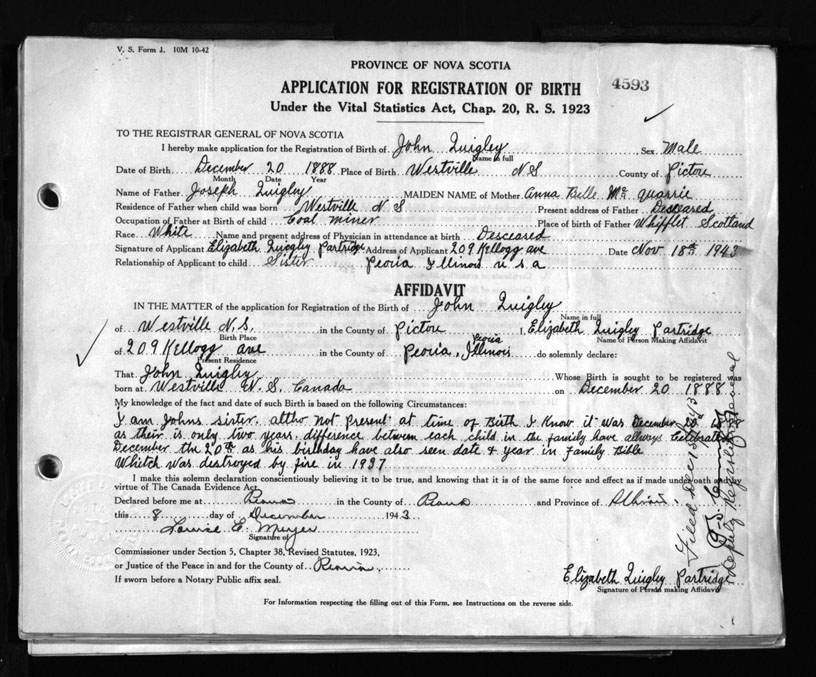 V. S. Form J. 10M 10-42
PROVINCE OF NOVA SCOTIA
APPLICATION FOR REGISTRATION OF BIRTH 4593
Under the Vital Statistics Act, Chap. 20, R. S. 1923
TO THE REGISTRAR GENERAL OF NOVA SCOTIA
I hereby make application for the Registration of Birth of John Quigley Sex Male
Name in full
Date of Birth December 20 1888 Place of Birth Westville N S County of Pictou
Month Date Year
Name of Father Joseph Quigley MAIDEN NAME of Mother Anna Belle Mc Quarrie
Residence of Father when child was born Westville N S Present address of Father Desceared
Occupation of Father at Birth of child Coal miner Place of birth of Father Whifflet Scotland
Race White Name and present address of Physician in attendance at birth Desceared
Signature of Applicant Elizabeth Quigley Partridge Address of Applicant 209 Kellogg ave Date Nov 18th 1943
Relationship of Applicant to child Sister Peoria Illinois u s a
AFFIDAVIT
IN THE MATTER of the application for Registration of the Birth of John Quigley
Name in full
of Westville N.S. in the County of Pictou I, Elizabeth Quigley Partridge
Birth Place Name of Person Making Affidavit
of 209 Kellogg ave in the County of Peoria, Peoria Illinois do solemnly declare:
Present Residence
That John Quigley Whose Birth is sought to be registered was
born at Westville N. S. Canada on December 20 1888
My knowledge of the fact and date of such Birth is based on the following Circumstances:
I am Johns sister. altho not present at time of Birth I Know it was December 20th 1888
as their is only two years difference between each child in the family have allways Celebrated
December the 20th as his birthday have also seen date & year in Family Bible
Whitch was destroyed by fire in 1937
I make this solemn declaration conscientiously believing it to be true, and knowing that it is of the same force and effect as if made under oath and by
virtue of The Canada Evidence Act.
Declared before me at Peoria in the County of Peoria and Province of Illinois.
this 8 day of December 1943
Louise E. Meyer
Signature of
Commissioner under Section 5, Chapter 38, Revised Statutes, 1923,
or Justice of the Peace in and for the County of Peoria.
If sworn before a Notary Public affix seal.
Elizabeth Quigley Partridge
Signature of Person making Affidavit
For Information respecting the filling out of this Form, see Instructions on the reverse side.
Deputy Registrar General